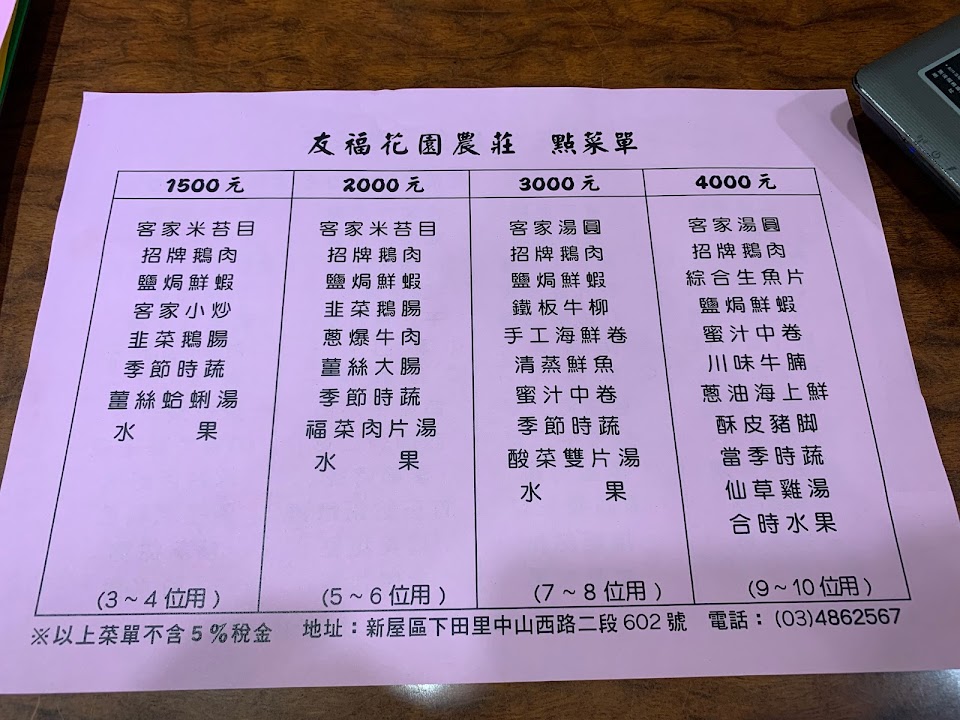 友福花園農莊 點菜單
1500元
客家米苔目
招牌鵝肉
鹽焗鮮蝦
客家小炒
韭菜鵝腸
季節時蔬
薑絲蛤蜊湯
水 果
(3~4位用)
2000元
客家米苔目
招牌鵝肉
鹽焗鮮蝦
韭菜鵝腸
蔥爆牛肉
薑絲大腸
季節時蔬
福菜肉片湯
水 果
(5~6位用)
3000元
客家湯圓
招牌鵝肉
鹽焗鮮蝦
鐵板牛柳
手工海鮮卷
清蒸鮮魚
蜜汁中卷
季節時蔬
酸菜雙片湯
水 果
(7~8位用)
4000元
客家湯圓
招牌鵝肉
綜合生魚片
鹽焗鮮蝦
蜜汁中卷
川味牛腩
蔥油海上鮮
酥皮豬腳
當季時蔬
仙草雞湯
合時水果
(9~10位用)
※以上菜單不含5%稅金 地址：新屋區下田里中山西路二段602號 電話：(03)4862567